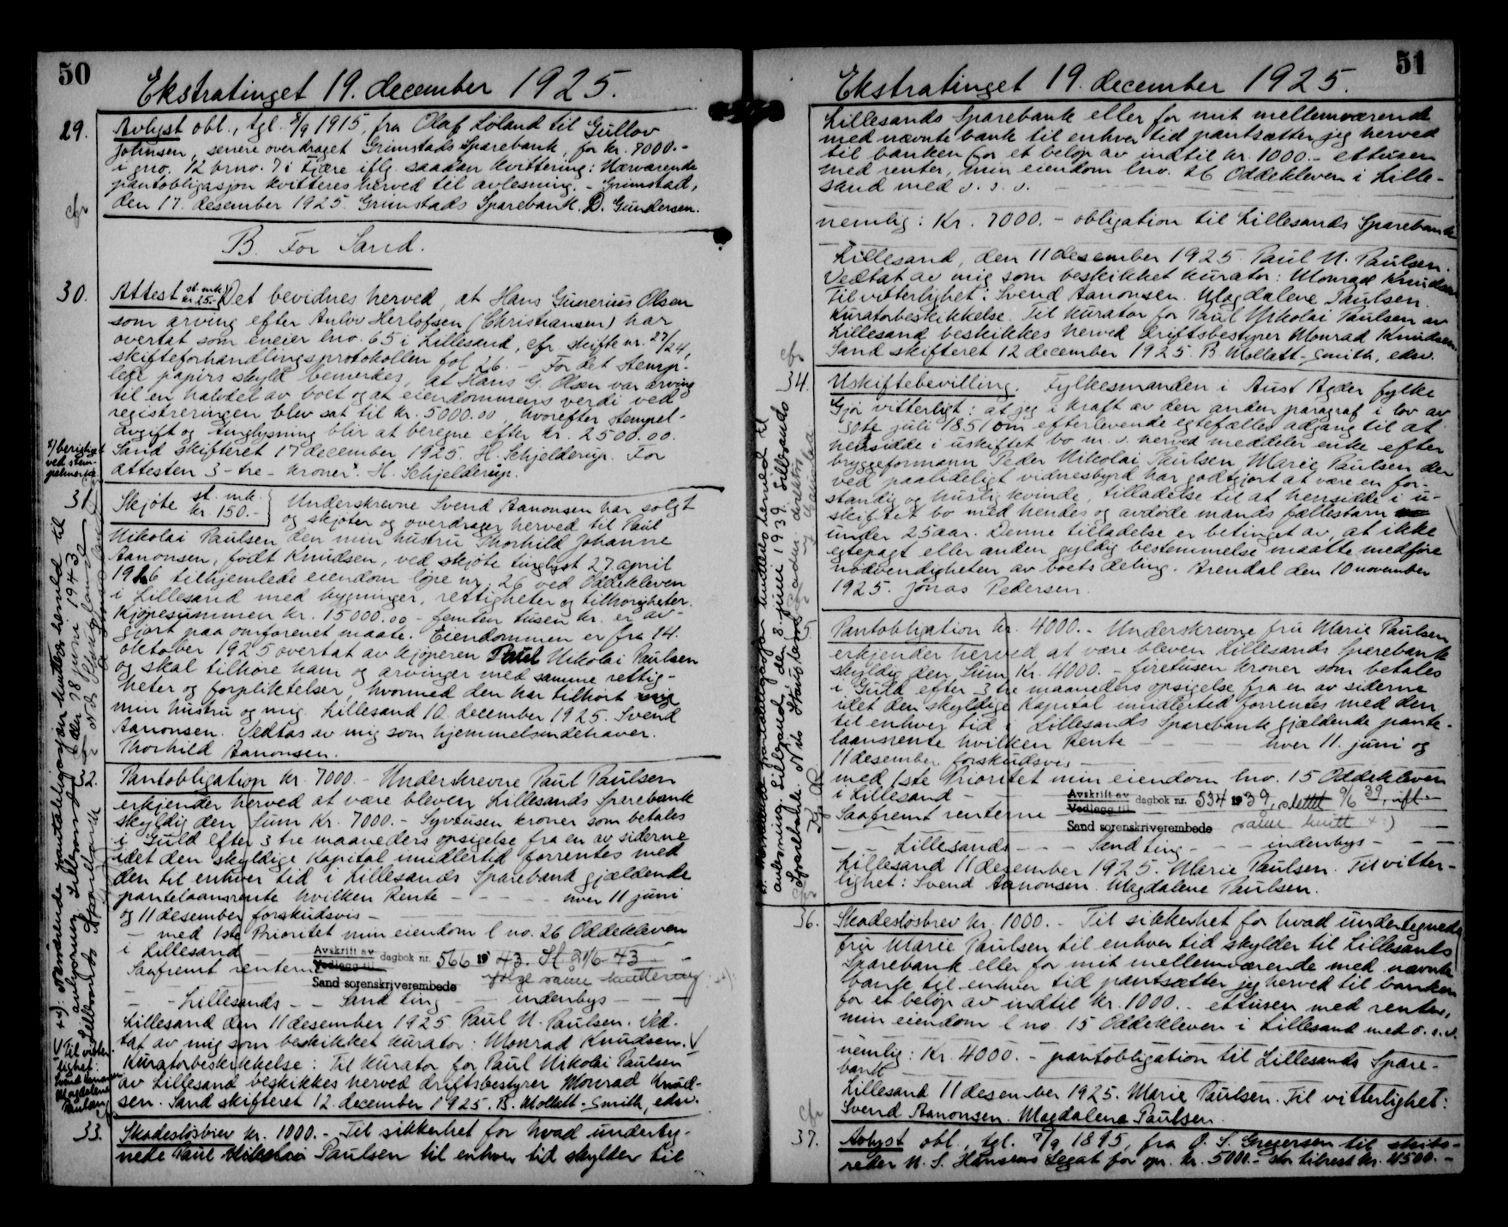 50
Ekstratinget 19. december 1925.
29.
Avlyst obl., tgl. 8/9 1915, fra Olaf Løland til Gullov
Johnsen, senere overdraget Grimstads Sparebank, for kr. 8000.-
i gno. 12 brno. 7 i Fjære iflg. saadan kvittering: Nærværende
pantobligasjon kvitteres herved til avlesning. - Grimstad,
den 17. desember 1925. Grimstads Sparebank. D. Gundersen.
cfr
B. For Sand.
30.
Attest st. mk. kr. 25.- Det bevidnes herved, at Hans Gunerius Olsen
som arving efter Anlov Herlofsen (Christiansen) har
overtat som eneier lno. 65 i Lillesand, cfr. skifte nr. 27/24,
skifteforhandlingsprotokollen fol. 26. - For det stemp-
lede papirs skyld bemerkes, at Hans G. Olsen var arving
til en halvdel av boet og at eiendommens verdi ved
registreringen blev sat til kr. 5000.00, hvorefter stempel-
avgift og tinglysning blir at beregne efter kr. 2500.00.
Sand skifteret 17 december 1925. H. Schjelderup. For
attesten 3 - tre - kroner. H. Schjelderup.
31.
Skjøte st. mk. kr. 150.- Underskrevne Svend Aanonsen har solgt
og skjøter og overdrager herved til Paul
Nikolai Paulsen den min hustru Thorhild Johanne
Aanonsen, født Knudsen, ved skjøte tinglyst 27. april
1916 tilhjemlede eiendom løpe nr. 26 ved Oddekleven
i Lillesand med bygninger, rettigheter og tilhørigheter.
Kjøpesummen kr. 15000.00 - femten tusen kr. er av-
gjort paa omforenet maate. Eiendommen er fra 14.
oktober 1925 overtat av kjøperen Paul Nikolai Paulsen
og skal tilhøre ham og arvinger med samme rettig-
heter og forpliktelser, hvormed den har tilhørt
min hustru og mig. Lillesand 10. december 1925. Svend
Aanonsen. Vedtas av mig som hjemmelsindehaver.
Thorhild Aanonsen.
32.
Pantobligation kr. 7000.- Underskrevne Paul Paulsen
erkjender herved at være bleven Lillesands Sparebank
skyldig den Sum Kr. 7000.- Syvtusen kroner som betales
i Guld efter 3 tre maaneders opsigelse fra en av siderne
idet den skyldige Kapital imidlertid forrentes med
den til enhver tid i Lillesands Sparebank gjældende
pantelaansrente hvilken Rente - - - - - hver 11 juni
og 11 desember forskudsvis -
- med 1ste Prioritet min eiendom l no. 26 Oddekleven
i Lillesand
Avskrift av
Vedlegg til dagbok nr. 566 19 43.
Sand sorenskriverembede
Saafremt renterne
- - Lillesands - - Sand ting - - indenbys - - -
Lillesand den 11 desember 1925. Paul N. Paulsen. Ved-
tat av mig som beskikket kurator: Monrad Knudsen. V
Kuratorbeskikkelse: Til kurator for Paul Nikolai Paulsen
av Lillesand beskikkes herved driftsbestyrer Monrad Knud-
sen. Sand skifteret 12 december 1925. B. Mollatt-Smith, edsv.
V Til vitter-
lighet:
Svend Aanonsen
Magdalene
Paulsen
33.
Skadesløsbrev kr. 1000.- Til sikkerhet for hvad underteg-
nede Paul Nikolai Paulsen til enhver tid skylder til
51
Ekstratinget 19. december 1925.
Lillesands Sparebank eller for mit mellemværende
med nævnte bank til enhver tid pantsætter jeg herved
til banken for et beløp av indtil kr. 1000.- ettusen
med renter, min eiendom lno. 26 Oddekleven i Lille-
sand med o. s. v.
nemlig: Kr. 7000.- obligation til Lillesands Sparebank
Lillesand, den 11 desember 1925. Paul N. Paulsen.
Vedtat av mig som beskikket kurator: Monrad Knudsen
Til vitterlighet: Svend Aanonsen. Magdalene Paulsen.
Kuratorbeskikkelse. Til kurator for Paul Nikolai Paulsen av
Lillesand beskikkes herved driftsbestyrer Monrad Knudsen
Sand skifteret 12 december 1925. B. Mollatt-Smith, edsv.
cfr
34.
Uskiftebevilling. Fylkesmanden i Aust Agder fylke
Gjør vitterligt: at jeg i kraft av den anden paragraf i lov av
30te juli 1851 om efterlevende egtefælles adgang til at
hensidde i uskiftet bo m. v. herved meddeler enke efter
byggeformann Peder Nikolai Paulsen, Marie Paulsen der
ved paalideligt vidnesbyrd har godtgjort at være en for-
standig og huslig kvinde, tilladelse til at hensidde i u-
skiftet bo med hendes og avdøde mands fællesbarn
under 25 aar. Denne tilladelse er betinget av, at ikke
egtepagt eller anden gyldig bestemmelse maatte medføre
nødvendigheten av boets deling. Arendal den 10 november
1925. Jonas Pedersen.
35.
Pantobligation kr. 4000.- Underskrevne fru Marie Paulsen
erkjender herved at være bleven Lillesands Sparebank
skyldig den Sum Kr. 4000.- firetusen kroner som betales
i Guld efter 3 tre maaneders opsigelse fra en av siderne
idet den skyldige Kapital imidlertid forrentes med den
til enhver tid i Lillesands Sparebank gjældende pante-
laansrente hvilken Rente - - - - hver 11. juni og
11 desember forskudsvis -
med 1ste Prioritet min eiendom lno. 15 Oddekleven
i Lillesand
Avskrift av
Vedlegg til dagbok nr. 534 19 39, slettet 9/6 39, ifl.
Sand sorenskriverembede
Saafremt renterne
- - Lillesands - - - Sand ting - - - indenbys - - -
Lillesand 11 desember 1925. Marie Paulsen. Til vitter-
lighet: Svend Aanonsen. Magdalene Paulsen.
cfr
36.
Skadesløsbrev kr. 1000.- Til sikkerhet for hvad undertegnede
fru Marie Paulsen til enhver tid skylder til Lillesands
Sparebank eller for mit mellemværende med nævnte
bank til enhver tid pantsætter jeg herved til banken
for et beløp av indtil kr. 1000.- ettusen med renter,
min eiendom l no. 15 Oddekleven i Lillesand med o. s. v.
nemlig: Kr. 4000.- pantobligation til Lillesands Spare-
bank
Lillesand 11 desember 1925. Marie Paulsen. Til vitterlighet:
Svend Aanonsen. Magdalena Paulsen.
cfr
37.
Avlyst obl., tgl. 7/9 1895, fra O. T. Gregersen til skibs-
reder N. S. Hansens Legat for opr. kr. 5000.- stor tilrest kr. 4500.-